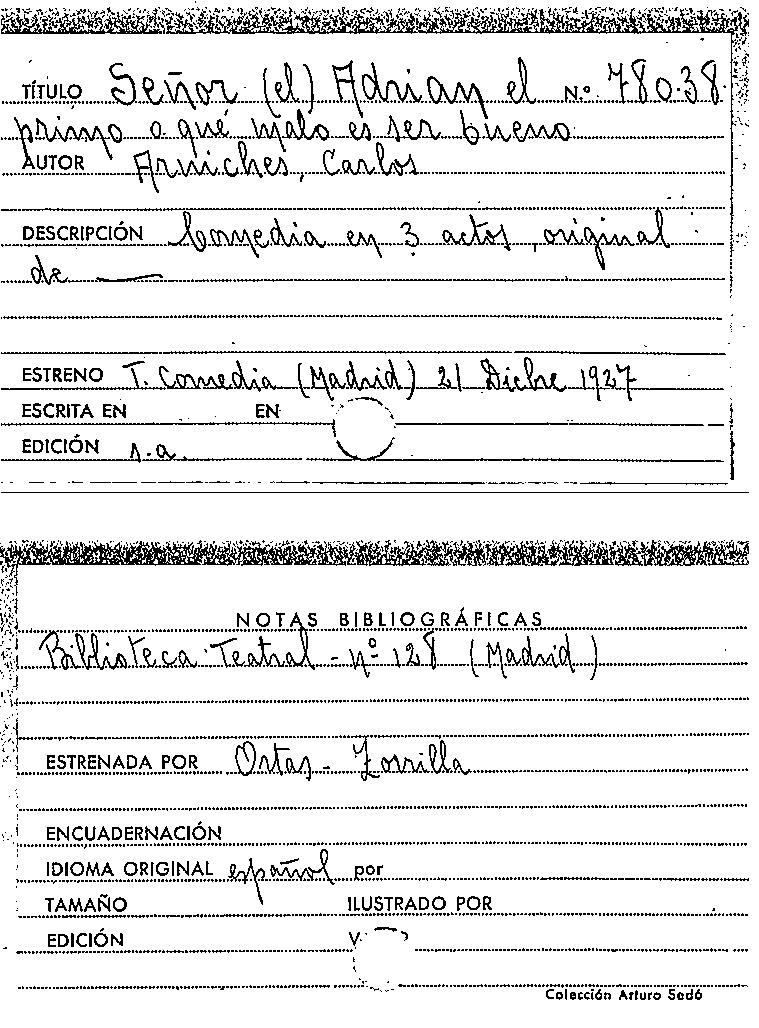 TÍTULO Señor (el) Adrian el N.º 78038
primo o qué malo es ser bueno
AUTOR Arniches, Carlos
DESCRIPCIÓN Comedia en 3 actos, original
de —
ESTRENO T. Comedia (Madrid) 21 Dicbre 1927
ESCRITA EN EN
EDICIÓN s.a.
NOTAS BIBLIOGRÁFICAS
Biblioteca Teatral - nº 128 (Madrid)
ESTRENADA POR Ortas - Zorrilla
ENCUADERNACIÓN
IDIOMA ORIGINAL español por
TAMAÑO ILUSTRADO POR
EDICIÓN
Colección Arturo Sedó